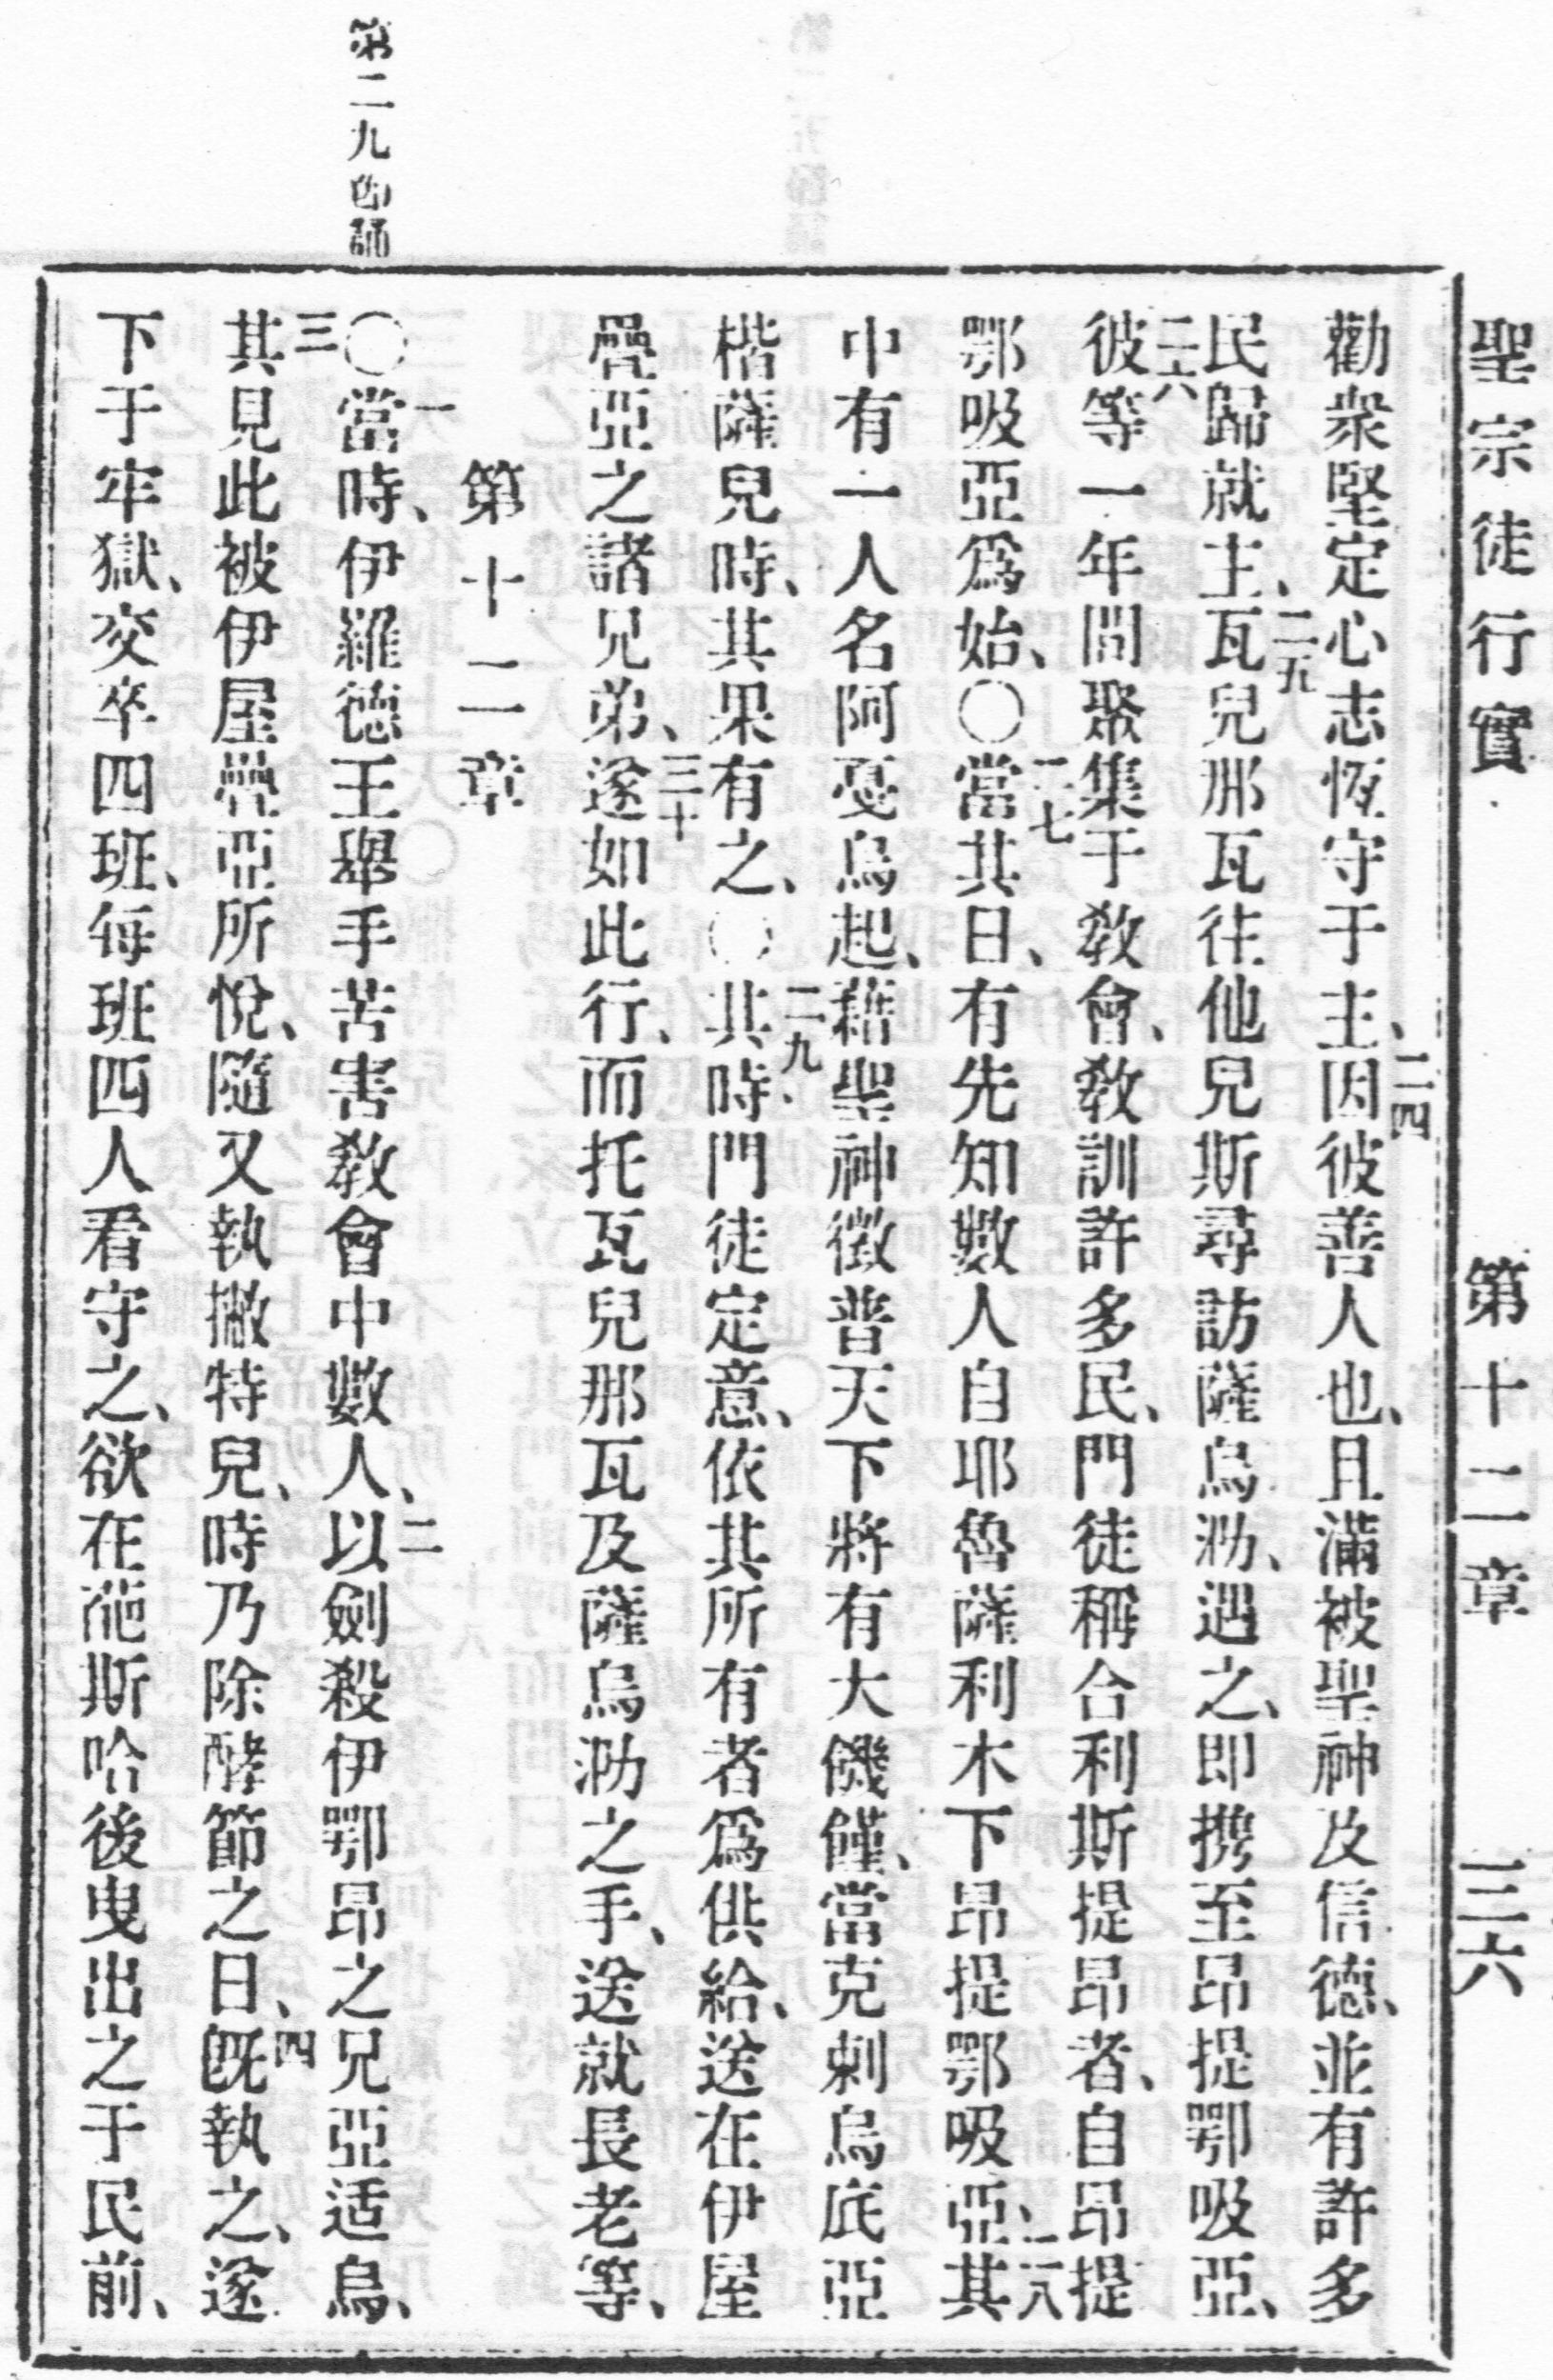 聖宗徒行實 第十二章 三六
勸衆堅定心志恆守于主、二四因彼善人也、且滿被聖神及信德、並有許多
民歸就主、二五瓦兒那瓦往他兒斯尋訪薩烏泐、遇之、即携至昂提鄂吸亞、
二六彼等一年間聚集于敎會、敎訓許多民、門徒稱合利斯提昂者、自昂提
鄂吸亞爲始、〇二七當其日、有先知數人自耶魯薩利木下昂提鄂吸亞、二八其
中有一人名阿戞烏起、藉聖神徵普天下將有大饑饉、當克剌烏底亞
楷薩兒時、其果有之、〇二九其時門徒定意、依其所有者爲供給、送在伊屋
疊亞之諸兄弟、三十遂如此行、而托瓦兒那瓦及薩烏泐之手、送就長老等、
第十二章
〇一當時、伊羅德王舉手苦害敎會中數人、二以劍殺伊鄂昂之兄亞适烏、
三其見此被伊屋疊亞所悅、隨又執撇特兒、時乃除酵節之日、四旣執之、遂
下于牢獄、交卒四班、每班四人看守之、欲在葩斯哈後曳出之于民前、
第二九